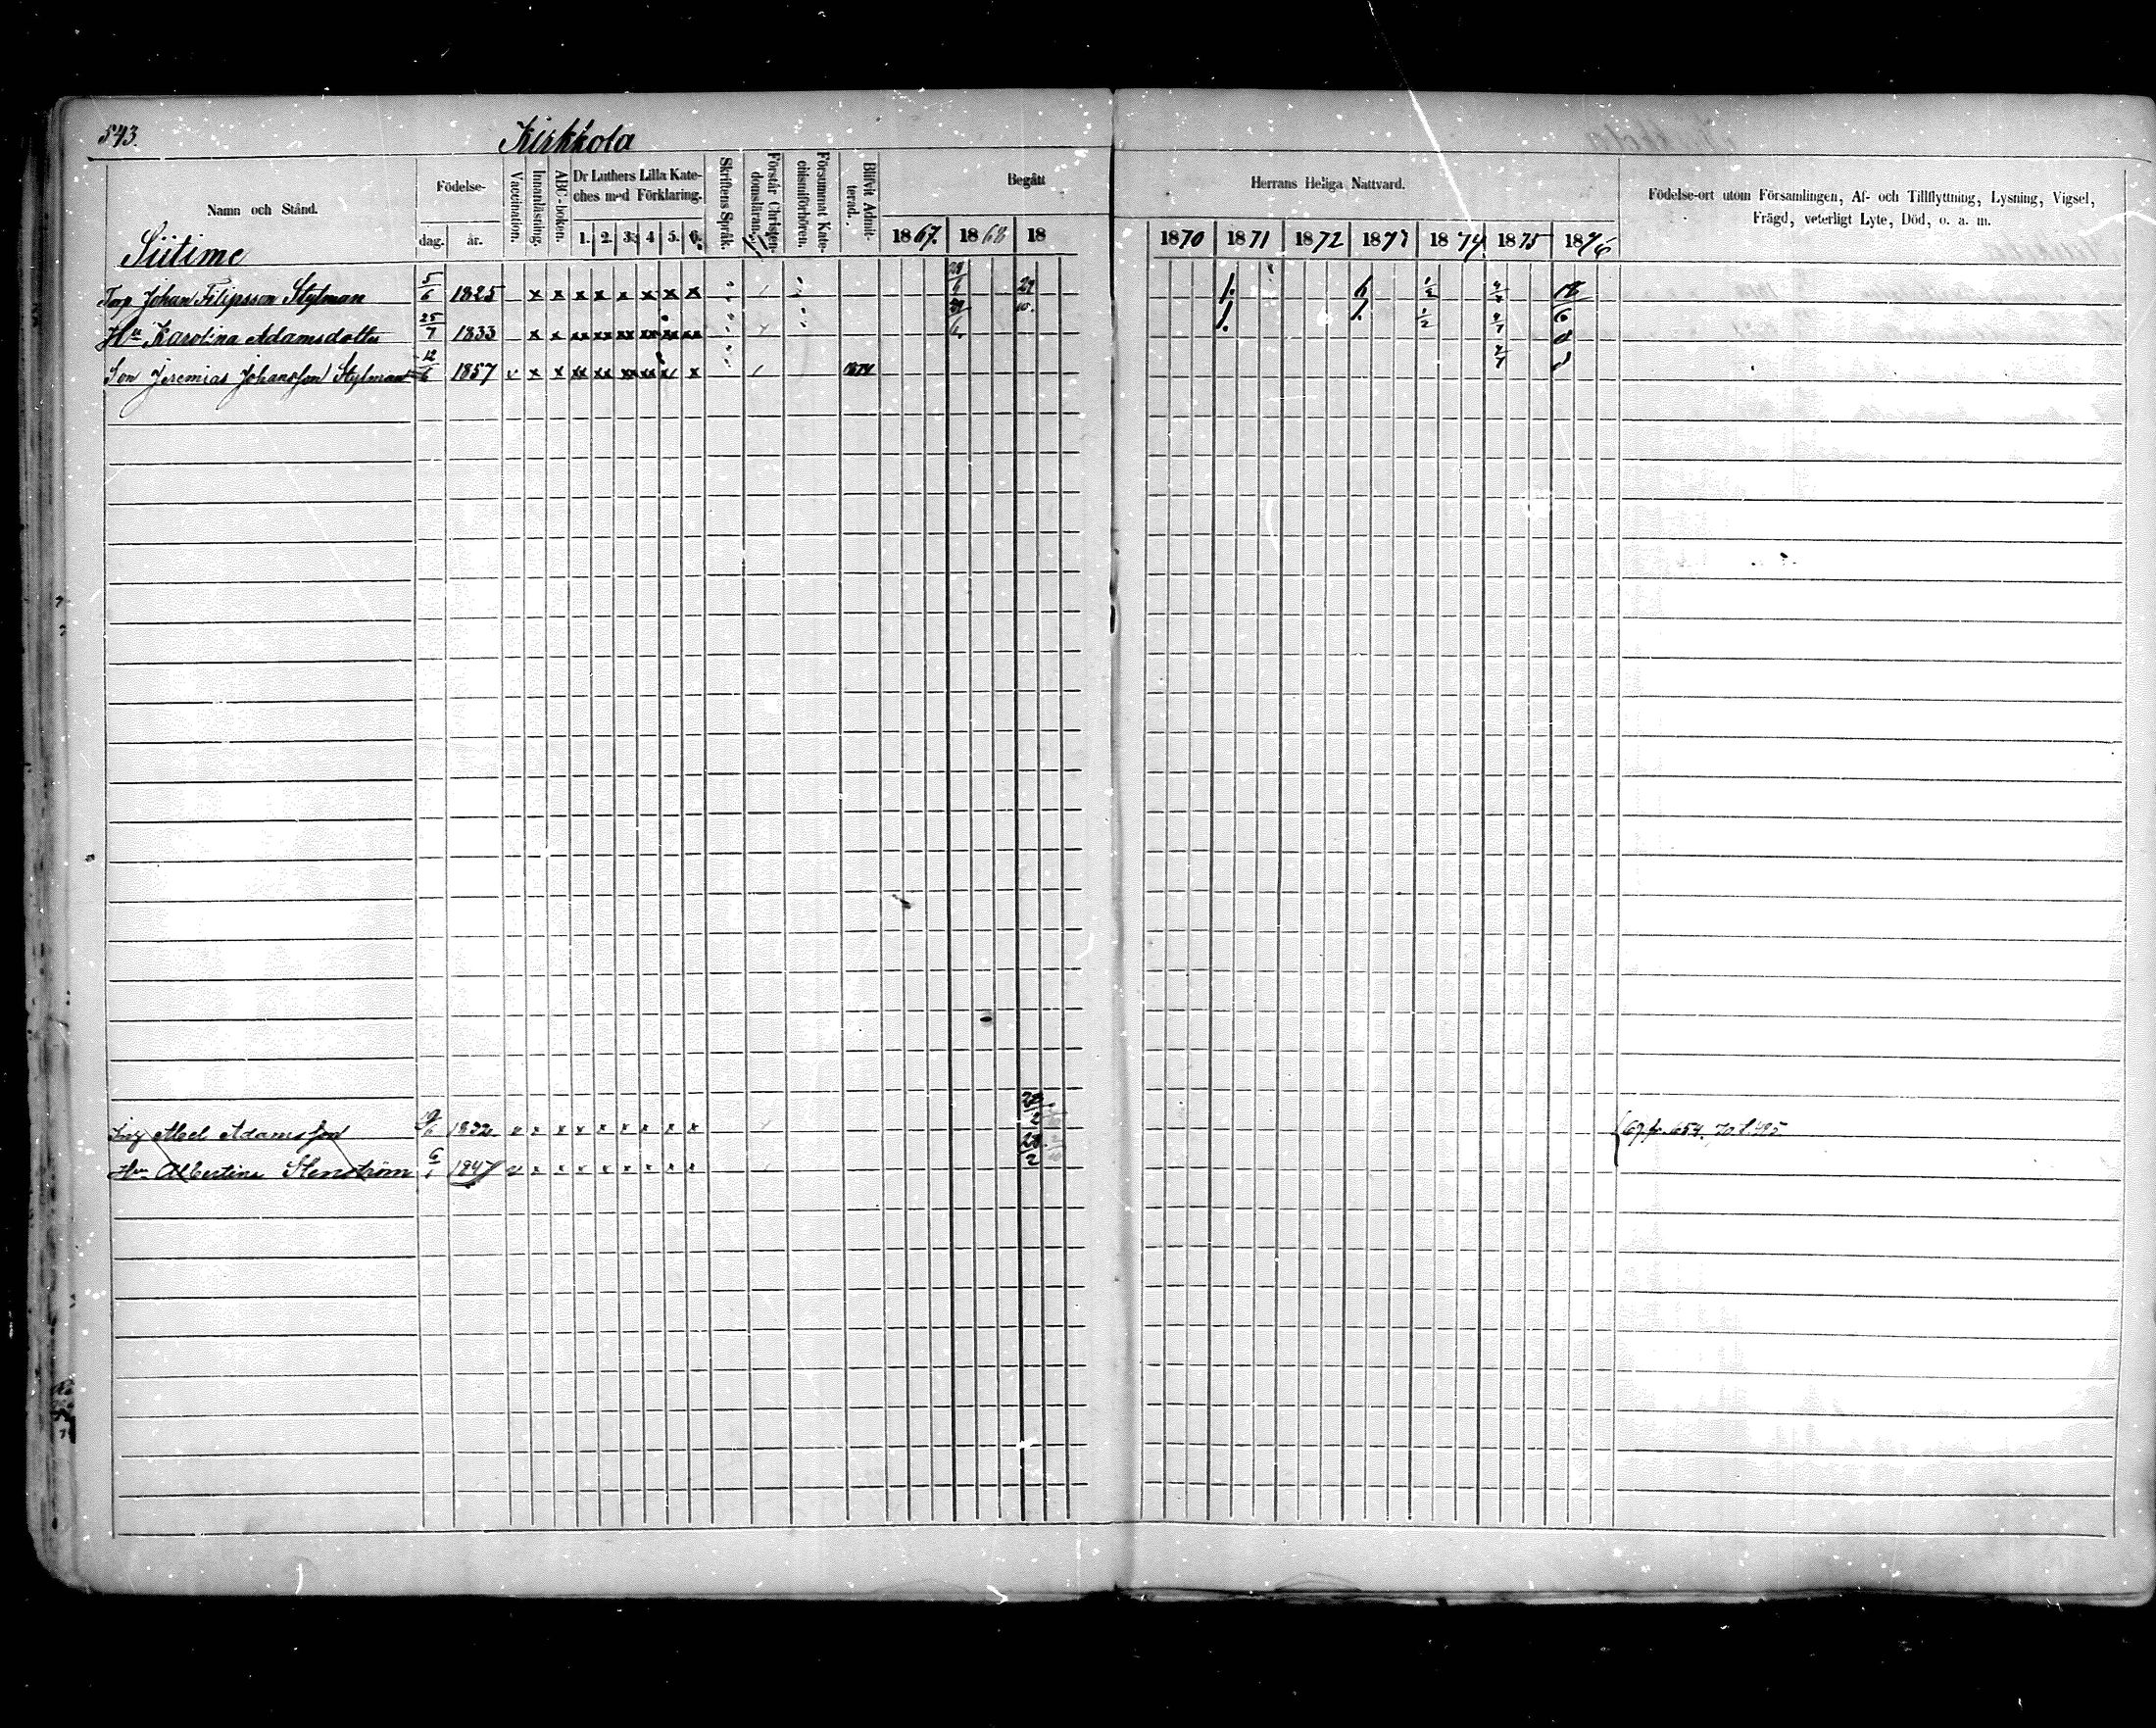 543.
Kirkkola
Namn och Stånd.
Födelse-
dag.
år.
Vaccination.
Innanläsning.
ABC-boken.
Dr Luthers Lilla Kate-
ches med Förklaring.
1. 2. 3. 4 5. 6.
Skriftens Språk.
Förstår Christen-
domsläran.
Försummat Kate-
chismiförhören.
Blifvit Admit-
terad.
Begått
Herrans Heliga Nattvard.
1867. 1868 18
1870 1871 1872 1873 1874 1875 1876
Födelse-ort utom Församlingen, Af- och Tillflyttning, Lysning, Vigsel,
Frägd, veterligt Lyte, Död, o. a. m.
Siitime
Torp Johan Filipsson Stylman 5/6 1825 x x x x x x x x
Hu Karolina Adamsdotter 25/7 1833
Son Jeremias Johansson Stylman 12/6 1857 v x x 1874
Abel Adamsson 1832 v x x x x x x x x
69 fr. 654. 70 t. 495.
Hu Albertina Stenström 1847 v x x x x x x x x